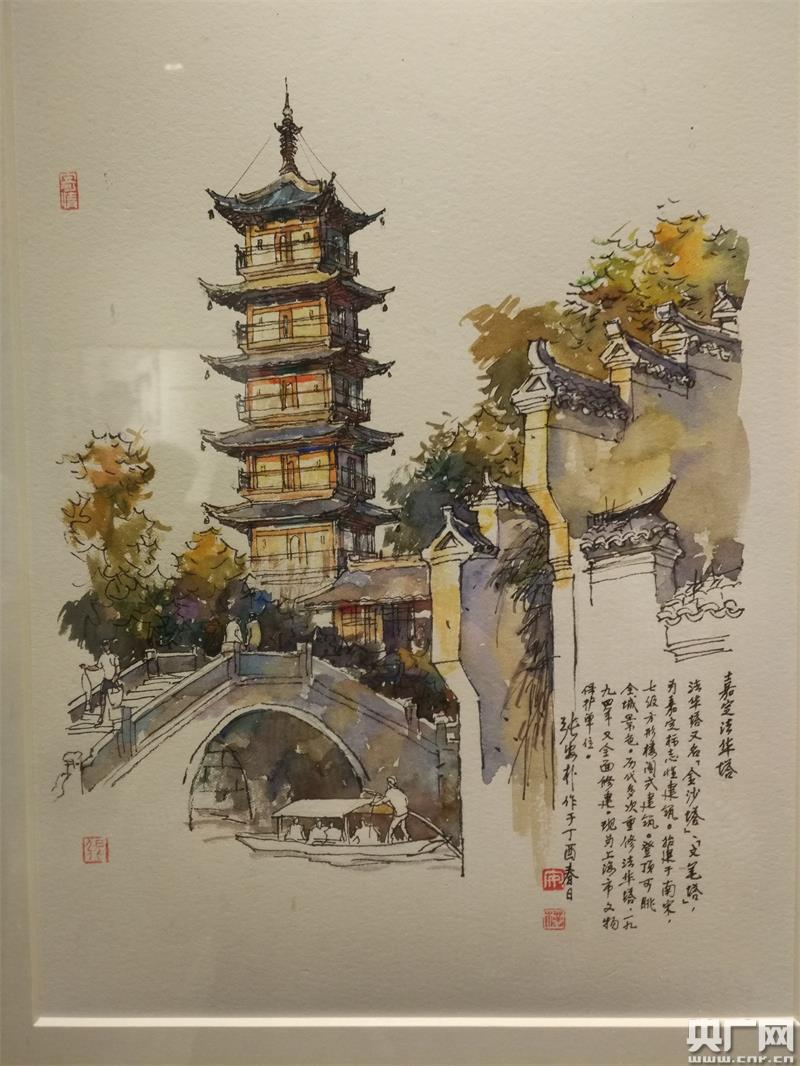 嘉定法华塔
法华塔又名「金沙塔」、「文笔塔」，
为嘉定标志性建筑。始建于南宋，
七级方形楼阁式建筑。登顶可眺
全城景色。历代多次重修法华塔，一九
九四年又全面修建。现为上海市文物
保护单位。
张安朴作于丁酉春日
央广网
www.cnr.cn